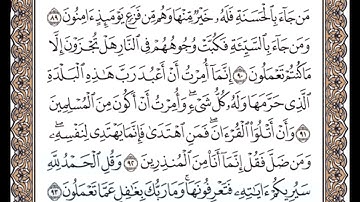 مَن جَآءَ بِٱلْحَسَنَةِ فَلَهُۥ خَيْرٌ مِّنْهَا وَهُم مِّن فَزَعٍ يَوْمَئِذٍ ءَامِنُونَ ٨٩
وَمَن جَآءَ بِٱلسَّيِّئَةِ فَكُبَّتْ وُجُوهُهُمْ فِى ٱلنَّارِ هَلْ تُجْزَوْنَ إِلَّا
مَا كُنتُمْ تَعْمَلُونَ ٩٠ إِنَّمَآ أُمِرْتُ أَنْ أَعْبُدَ رَبَّ هَٰذِهِ ٱلْبَلْدَةِ
ٱلَّذِى حَرَّمَهَا وَلَهُۥ كُلُّ شَىْءٍ ۖ وَأُمِرْتُ أَنْ أَكُونَ مِنَ ٱلْمُسْلِمِينَ
٩١ وَأَنْ أَتْلُوَا۟ ٱلْقُرْءَانَ ۖ فَمَنِ ٱهْتَدَىٰ فَإِنَّمَا يَهْتَدِى لِنَفْسِهِۦ ۖ
وَمَن ضَلَّ فَقُلْ إِنَّمَآ أَنَا۠ مِنَ ٱلْمُنذِرِينَ ٩٢ وَقُلِ ٱلْحَمْدُ لِلَّهِ
سَيُرِيكُمْ ءَايَٰتِهِۦ فَتَعْرِفُونَهَا ۚ وَمَا رَبُّكَ بِغَٰفِلٍ عَمَّا تَعْمَلُونَ ٩٣